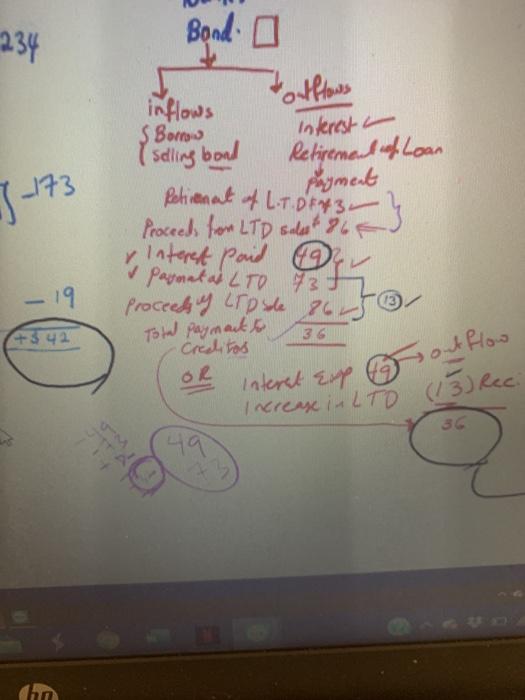 234
Bond.
inflows
outflows
Borrow
Selling bond
Interest
Retirement of Loan
Payment
-173
Retirement of L.T.D $73
Proceeds from LTD sales $86
Interest Paid 49
Payment of LTD 73
Proceeds of LTD Sale 86
13
Total Payment to Creditors
36
- 19
+$42
OR
Interest Exp 49
outflow
Increase in LTD (13) Rec
36
49
73
hp